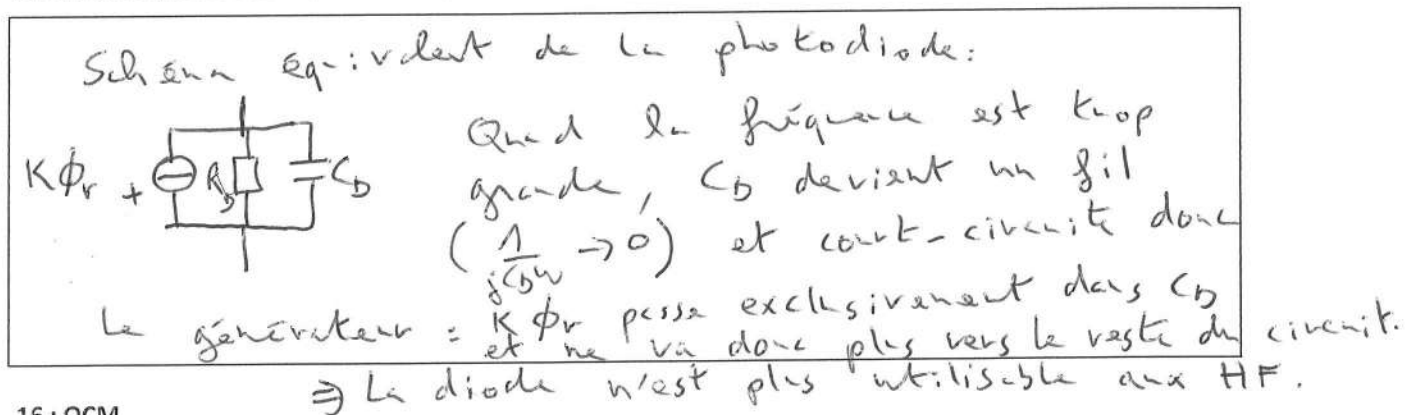 Schéma équivalent de la photodiode:
Quand la fréquence est trop
Kϕr + R_D C_D grande, C_D devient un fil
(1/(jC_Dω) → 0) et court-circuite donc
le générateur : Kϕr passe exclusivement dans C_D
et ne va donc plus vers le reste du circuit.
⇒ La diode n'est plus utilisable aux HF.
16 : QCM